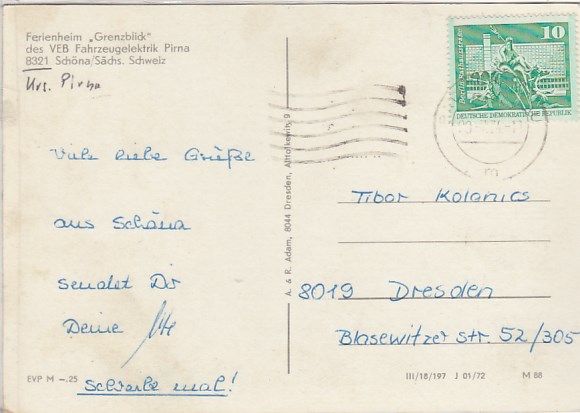 Ferienheim „Grenzblick"
des VEB Fahrzeugelektrik Pirna
8321 Schöna/Sächs. Schweiz
Krs. Pirna
Viele liebe Grüße
aus Schöna
sendet Dir
Deine Ute
Schreibe mal!
EVP M –.25
A. & R. Adam, 8044 Dresden, Altlockwitz 9
10
Berlin, Rathausstraße
DEUTSCHE DEMOKRATISCHE REPUBLIK
Tibor Kolanics
8019 Dresden
Blasewitzer Str. 52/305
III/18/197 J 01/72 M 88